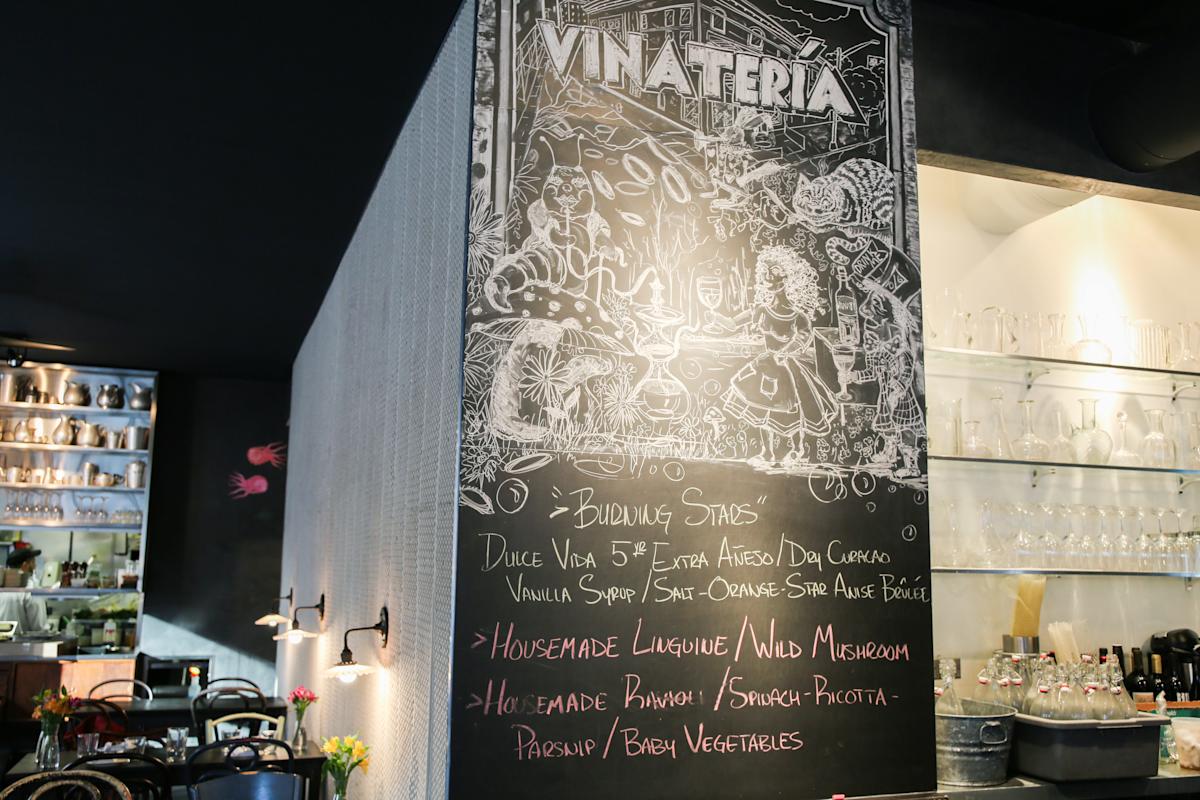 VINATERÍA
DRINK ME
>"BURNING STARS"
DULCE VIDA 5YR EXTRA AÑESO/DRY CURACAO
VANILLA SYRUP/SALT-ORANGE-STAR ANISE BRÛLÉE
>HOUSEMADE LINGUINE/WILD MUSHROOM
>HOUSEMADE RAVIOLI/SPINACH-RICOTTA-
PARSNIP/BABY VEGETABLES